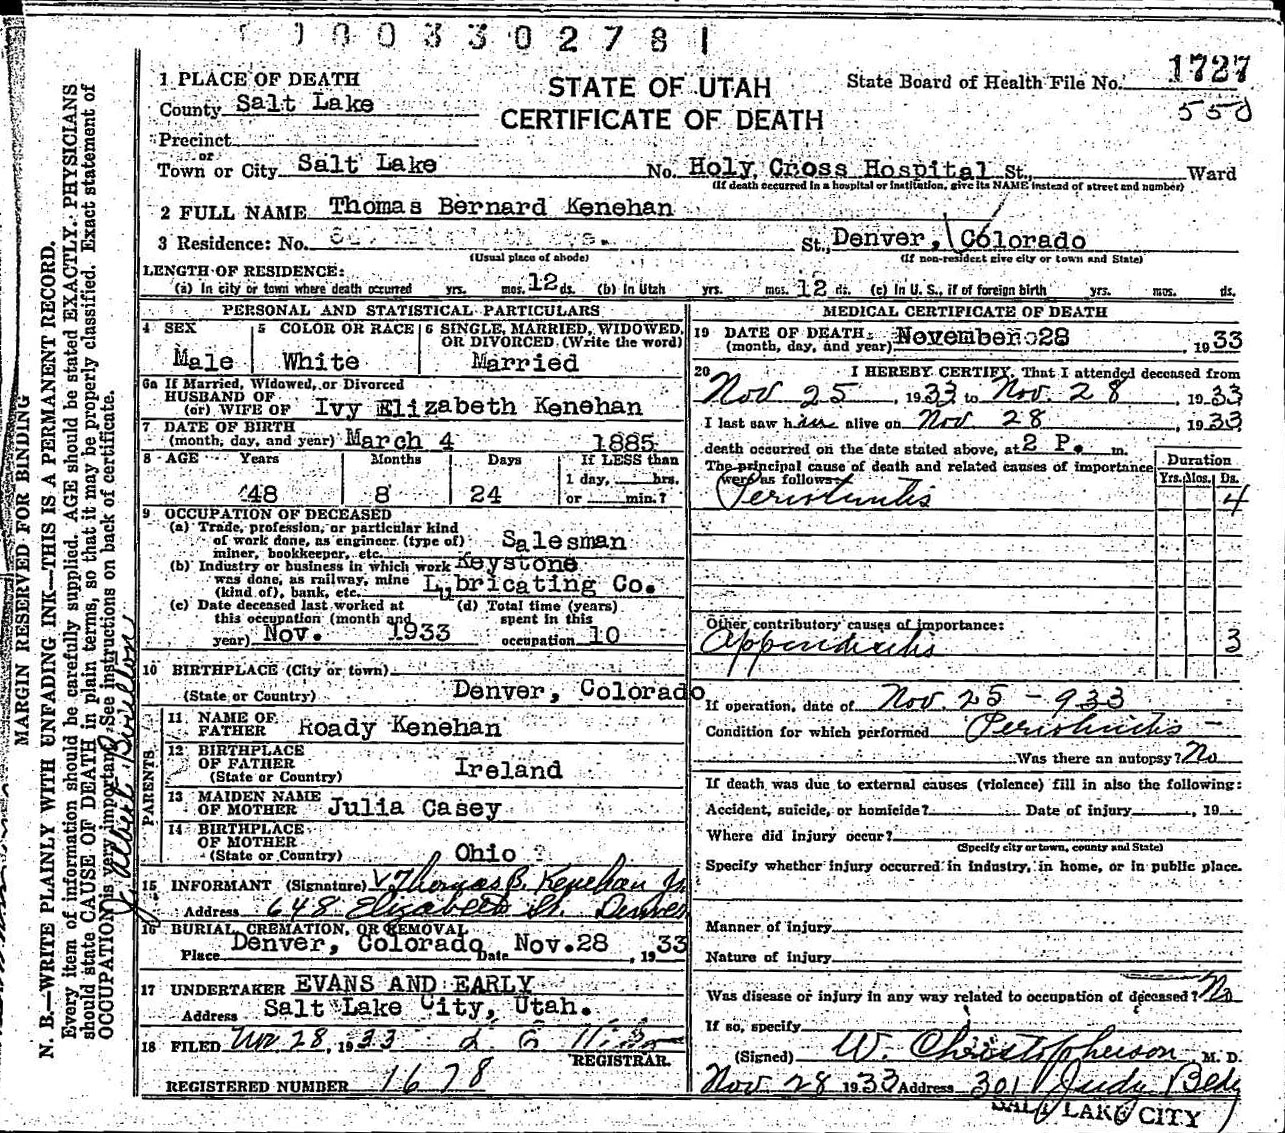 0 0 3 3 0 2 7 8 1
1727
550
STATE OF UTAH
CERTIFICATE OF DEATH
State Board of Health File No.
1 PLACE OF DEATH
County Salt Lake
Precinct
or
Town or City Salt Lake No. Holy Cross Hospital St., Ward
(If death occurred in a hospital or institution, give its NAME instead of street and number)
2 FULL NAME Thomas Bernard Kenehan
3 Residence: No. St., Denver, Colorado
(Usual place of abode) (If non-resident give city or town and State)
LENGTH OF RESIDENCE:
(a) In city or town where death occurred yrs. mos. 12 ds. (b) In Utah yrs. mos. 12 ds. (c) In U. S., if of foreign birth yrs. mos. ds.
PERSONAL AND STATISTICAL PARTICULARS
4 SEX 5 COLOR OR RACE 6 SINGLE, MARRIED, WIDOWED, OR DIVORCED (Write the word)
Male White Married
6a If Married, Widowed, or Divorced
HUSBAND OF
(or) WIFE OF Ivy Elizabeth Kenehan
7 DATE OF BIRTH
(month, day, and year) March 4 1885
8 AGE Years Months Days If LESS than
1 day, hrs.
48 8 24 or min.?
9 OCCUPATION OF DECEASED
(a) Trade, profession, or particular kind
of work done, as engineer (type of)
miner, bookkeeper, etc. Salesman
(b) Industry or business in which work
was done, as railway, mine
(kind of), bank, etc. Keystone
Lubricating Co.
(c) Date deceased last worked at
this occupation (month and
year) Nov. 1933
(d) Total time (years)
spent in this
occupation 10
10 BIRTHPLACE (City or town)
(State or Country) Denver, Colorado
PARENTS
11 NAME OF
FATHER Roady Kenehan
12 BIRTHPLACE
OF FATHER
(State or Country) Ireland
13 MAIDEN NAME
OF MOTHER Julia Casey
14 BIRTHPLACE
OF MOTHER
(State or Country) Ohio ?
15 INFORMANT (Signature) Thomas B. Kenehan Jr.
Address 648 Elizabeth St. Denver
16 BURIAL, CREMATION, OR REMOVAL
Place Denver, Colorado Date Nov. 28, 1933
17 UNDERTAKER EVANS AND EARLY
Address Salt Lake City, Utah.
18 FILED Nov 28, 1933
REGISTRAR.
REGISTERED NUMBER 1678
MEDICAL CERTIFICATE OF DEATH
19 DATE OF DEATH:
(month, day, and year) November 28, 1933
20 I HEREBY CERTIFY, That I attended deceased from
Nov 25, 1933 to Nov. 28, 1933
I last saw him alive on Nov 28, 1933
death occurred on the date stated above, at 2 P. m.
The principal cause of death and related causes of importance
were as follows:
Duration
Yrs. Mos. Ds.
Peritonitis 4
Other contributory causes of importance:
Appendicitis 3
If operation, date of Nov. 25 - 933
Condition for which performed Peritonitis -
Was there an autopsy? No
If death was due to external causes (violence) fill in also the following:
Accident, suicide, or homicide? Date of injury , 19
Where did injury occur?
(Specify city or town, county and State)
Specify whether injury occurred in industry, in home, or in public place.
Manner of injury
Nature of injury
Was disease or injury in any way related to occupation of deceased? No
If so, specify
(Signed) W. Christopherson, M. D.
Nov 28 1933 Address 301 Judge Bldg
SALT LAKE CITY
MARGIN RESERVED FOR BINDING
N. B.—WRITE PLAINLY WITH UNFADING INK—THIS IS A PERMANENT RECORD.
Every item of information should be carefully supplied. AGE should be stated EXACTLY. PHYSICIANS
should state CAUSE OF DEATH in plain terms, so that it may be properly classified. Exact statement of
OCCUPATION is very important. See instructions on back of certificate.